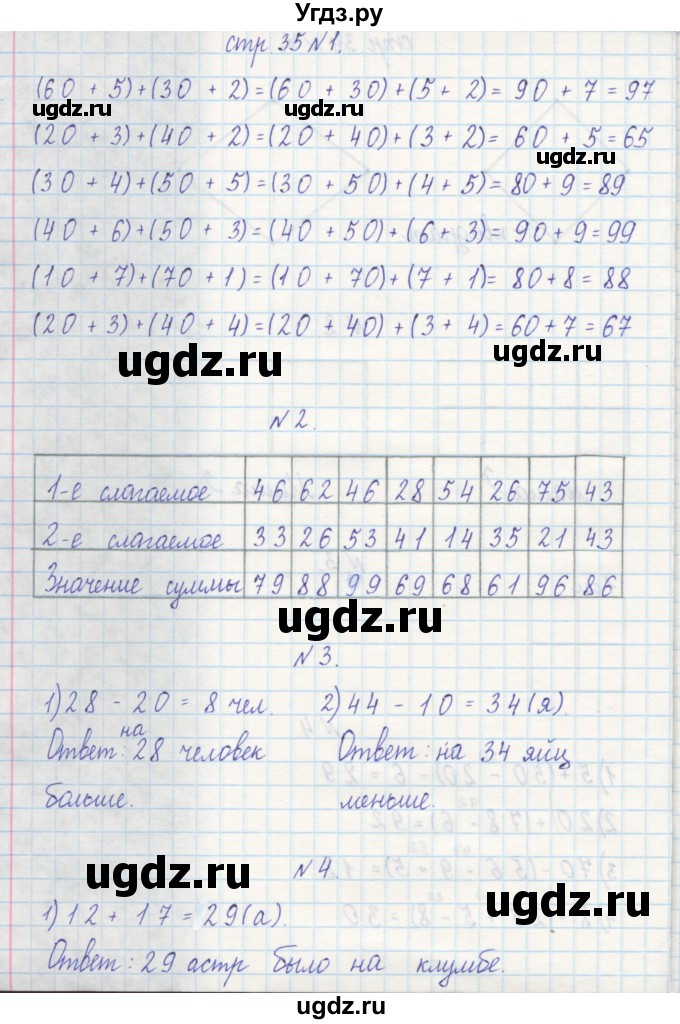 Угдз.ру
стр. 35 №1.
(60 + 5)+(30 + 2)=(60 + 30)+(5+ 2)= 90 + 7 = 97
ugdz.ru ugdz.ru
(20 + 3)+(40 + 2)=(20 + 40)+(3+2)= 60 + 5=65
ugdz.ru
(30 + 4)+(50 + 5)=(30 + 50)+(4+5)=80+9=89
(40 + 6)+(50 + 3)=(40 + 50)+(6+ 3)=90+9=99
(10 + 7)+(70 + 1)=(10 + 70)+(7 + 1)= 80+8= 88
ugdz.ru
(20 + 3)+(40 + 4)=(20 + 40)+(3+ 4)=60+7 = 67
ugdz.ru ugdz.ru
№2.
1-е слагаемое 46 62 46 28 54 26 75 43
2-е слагаемое 33 26 53 41 14 35 21 43
Значение суммы 79 88 99 69 68 61 96 86
ugdz.ru
№3.
1)28 - 20 = 8 чел. 2)44 - 10 = 34(я).
на
Ответ: 28 человек Ответ: на 34 яйц
больше. меньше.
ugdz.ru
ugdz.ru
№4.
1)12 + 17 = 29(а).
ugdz.ru
Ответ: 29 астр было на клумбе.
ugdz.ru